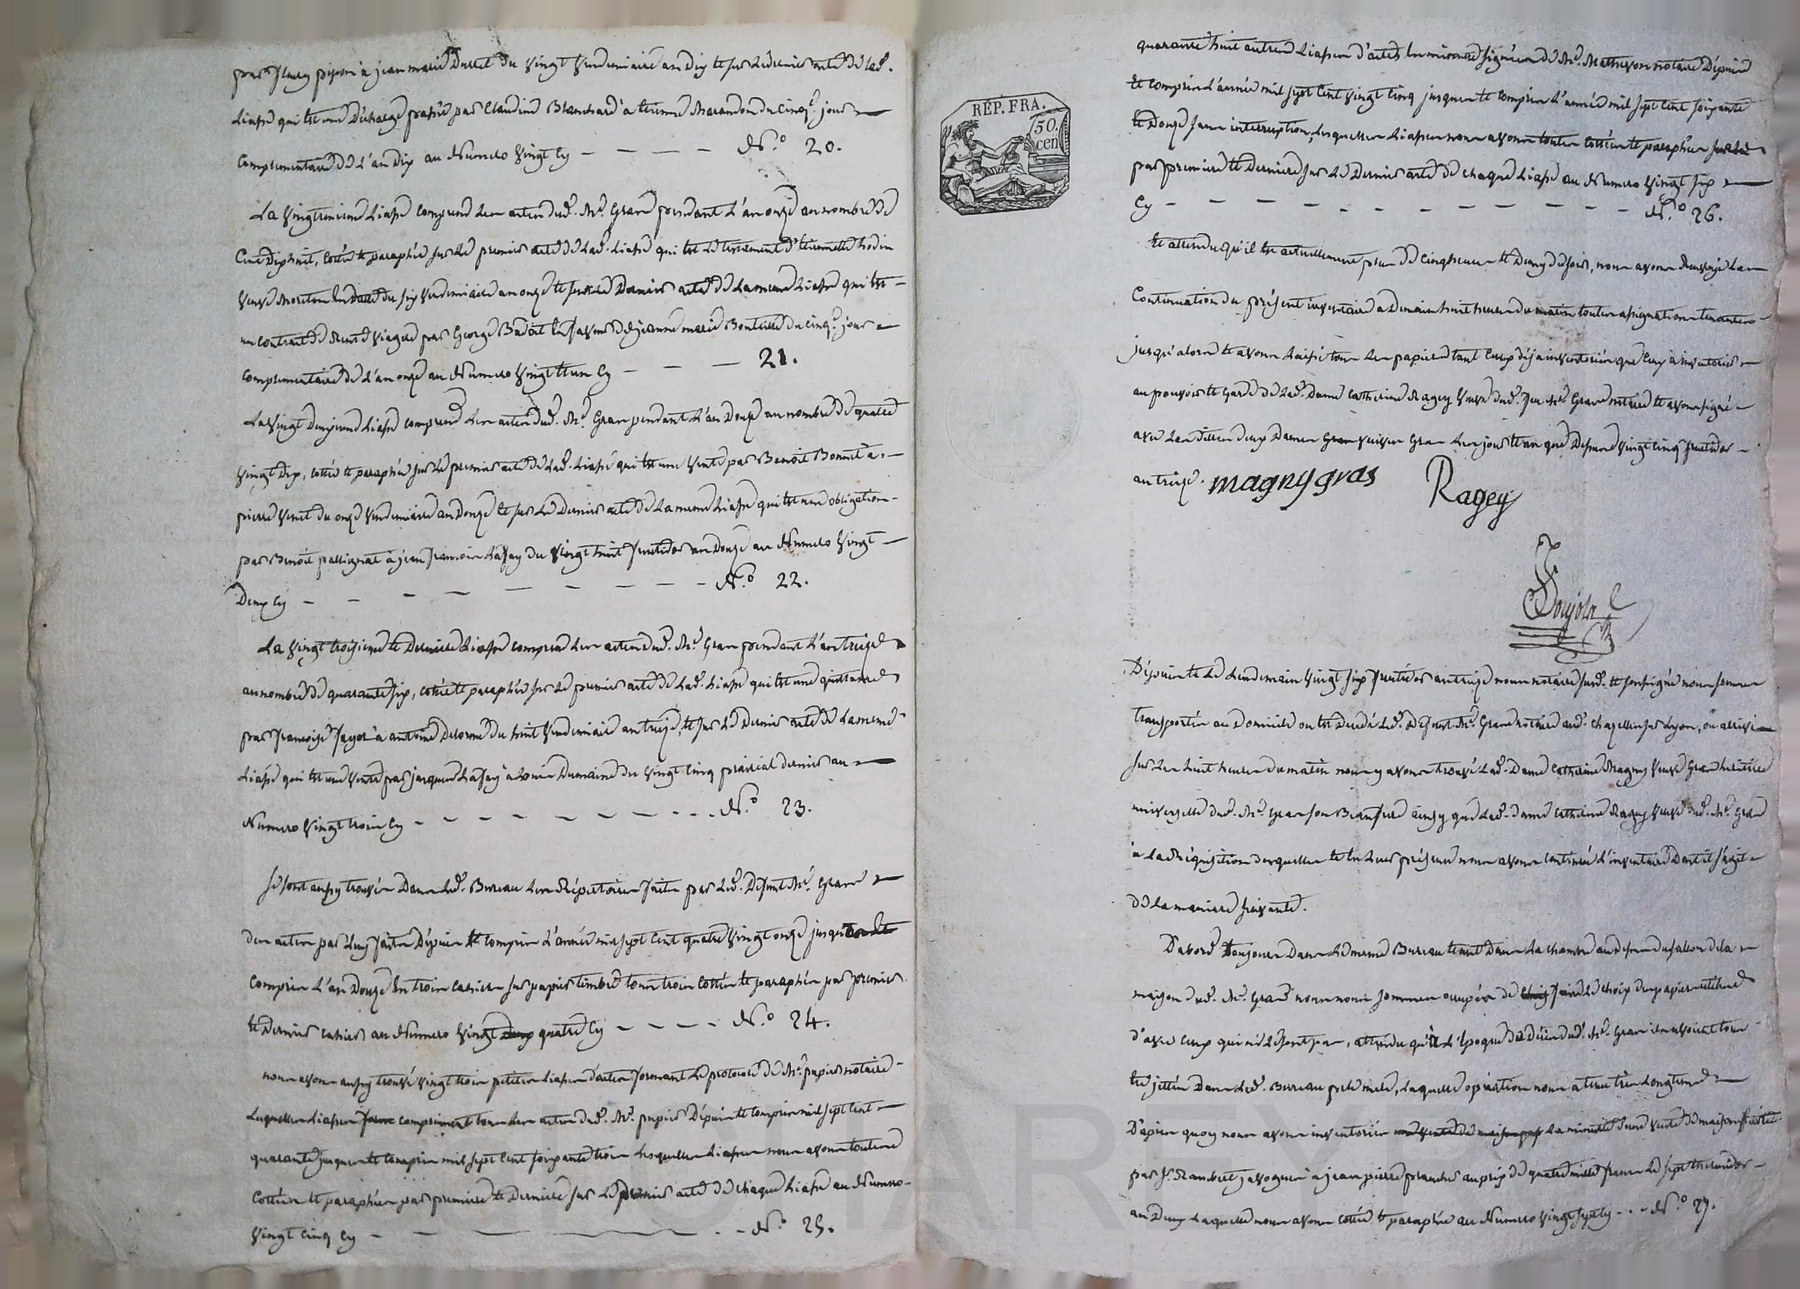 par fleury pijon à jean marie Dutel du vingt Vendemiaire an dix et sur le dernier acte de lad.
Liasse qui est une décharge passée par Claudine Blanchard à étienne Marandon du cinq.e jour
Complementaire de L'an dix au Numero Vingt Cy — — — — N.o 20.
La Vingtunieme Liasse comprend Les actes dud. M.e Gras pendant L'an onze au nombre de
Cent Dix huit, Cottée et paraphée sur le premier acte de Lad. Liasse qui est Le testament d'etiennette
Veuve du six Vendemiaire an onze et sur Le Dernier acte de La meme Liasse qui est
un contrat de Rente Viagere par George en faveur de jeanne marie du cinq.e jour
Complimentaire de L'an onze au Numero Vingt et un Cy — — — 21.
La Vingt Deuxieme Liasse comprend Les actes dud. M.e Gras pendant L'an Douze au nombre de quatre
Vingt Dix, Cottée et paraphée sur Le premier acte de Lad. Liasse qui est une Vente par Benoit Bonnet à
pierre du onze Vendemiaire an Douze et sur Le Dernier acte de La meme Liasse qui est une obligation
par Benoit à jean francois du Vingt huit fructidor an Douze au Numero Vingt
Deux Cy — — — — — — — N.o 22.
La Vingt troisieme et Derniere Liasse comprend Les actes dud. M.e Gras pendant L'an treize
au nombre de quarante six, Cottée et paraphée sur Le premier acte de Lad. Liasse qui est une quittance
par francoise à antoine Delorme du huit Vendemiaire an treize, et sur Le Dernier acte de La meme
Liasse qui est une Vente par jacques à du Vingt cinq prairial dernier au
Numero Vingt trois Cy — — — — — — — N.o 23.
Se sont aussy trouvés Dans Led. Bureau Les Répertoires faits par Led. Defunt M.e Gras
des actes par Luy faits Depuis et compris L'année mil sept cent quatre Vingt onze jusqu
Compris L'an Douze En trois cahiers sur papier timbré tous trois Cottés et paraphés par premier
et Dernier cahier au Numero Vingt quatre Cy — — — — N.o 24.
nous avons aussy trouvé Vingt trois petites Liasses d'actes formant Le protocole de M.e papier notaire
Lesquelles Liasses comprennent tous Les actes dud. M.e papier Depuis et compris mil sept cent
quarante jusques et compris mil sept cent soixante trois Lesquelles Liasses nous avons toutes
Cottées et paraphées par premiere et Derniere sur Le premier acte de chaque Liasse au Numero
Vingt Cinq Cy — — — — N.o 25.
RÉP. FRA.
50.
cen
quarante huit autres Liasses d'actes En minutes signées de M.e Mathevon notaire Depuis
et compris L'année mil sept cent Vingt Cinq jusques et compris L'année mil sept cent soixante
et Douze sans interruption, Lesquelles Liasses nous avons toutes Cottées et paraphées
par premiere et Derniere sur Le Dernier acte de chaque Liasse au Numero Vingt six
Cy — — — — — — — — — N.o 26.
et attendu qu'il est actuellement plus de Cinq heures et Demy du soir, nous avons Renvoyé La
Continuation du présent inventaire à Demain huit heures du matin toutes assignations tenantes
jusqu'alors et avons Laissé tous Les papiers tant Ceux déja inventoriés que Ceux à inventorier
au pouvoir et Garde de Lad. Dame Catherine Ragey Veuve dud. feu M.e Gras notaire et avons signé
avec Les dites deux Dames Veuves Gras Les jour et an que Dessus Vingt cinq fructidor
an treize. magny gras Ragey
Doujola
Dépuis et Le Lendemain Vingt six fructidor an treize nous notaire sus.d et soussigné nous sommes
transportés au Domicile ou est Decedé Led. Defunt M.e Gras notaire aud. Chazelles sur Lyon, ou arrivé
sur Les huit heures du matin nous y avons trouvé Lad. Dame Catherine Magny Veuve Gras heritiere
universelle dud. M.e Gras son Beaufrere ainsy que Lad. dame Catherine Ragey Veuve dud. M.e Gras
à La Réquisition desquelles et En Leur présence nous avons continué L'inventaire Dont il s'agit
de La maniere suivante.
D'abord toujours Dans Le meme Bureau tenant Dans La chambre au dessus du sallon de la
maison dud. M.e Gras nous nous sommes occupés de faire Le choix des papiers utiles
d'avec Ceux qui ne Le sont pas, attendu qu'à L'Epoque du Décès dud. M.e Gras ils avoient tous
été jettés Dans Led. Bureau pele mele, Laquelle opération nous a tenu très Longtems
D'apres quoy nous avons inventorié La minute d'une Vente de maison
par S.t Rambert à jean pierre au prix de quatre mille francs Le sept thermidor
an Deux Laquelle nous avons Cottée et paraphée au Numero Vingt sept Cy - - N.o 27.